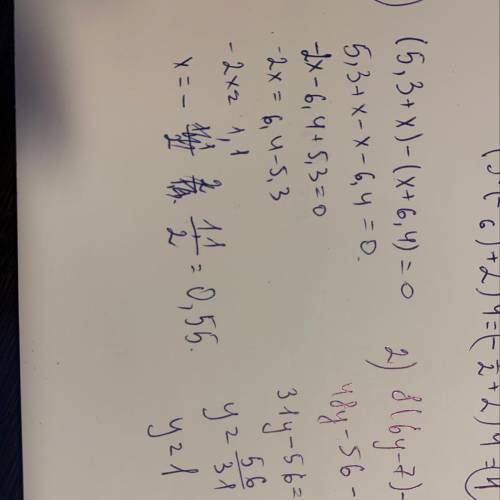 ( -6) + 2) 4 = (- 1/2 + 2) 4 =
) (5,3+x) - (x+6,4) = 0
5,3+x-x-6,4=0.
-2x-6,4+5,3=0
-2x=6,4-5,3
-2x= 1,1
x= - 11/2 = 0,55.
2) 8(6y-7)
48y-56-
31y-56=
y= 56/31
y=1